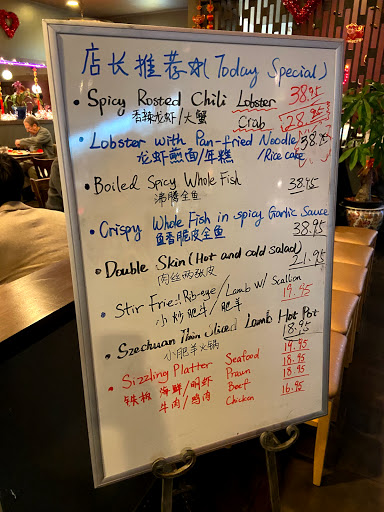 店长推荐 (Today Special)
• Spicy Rosted Chili Lobster 38.95
香辣龙虾/大蟹 Crab 28.95
• Lobster with Pan-fried Noodle 38.95
龙虾煎面/年糕 /Rice cake
• Boiled Spicy Whole Fish 38.95
沸腾全鱼
• Crispy Whole Fish in spicy Garlic Sauce
鱼香脆皮全鱼 38.95
• Double Skin (Hot and cold salad)
肉丝两张皮 21.95
• Stir Fried Rib-eye/Lamb w/ Scallion
小炒肥牛/肥羊 19.95
• Szechuan Thin Sliced Lamb Hot Pot
小肥羊火锅 18.95
• Sizzling Platter Seafood 19.95
铁板 海鲜/明虾 Prawn 18.95
牛肉/鸡肉 Beef 18.95
Chicken 16.95